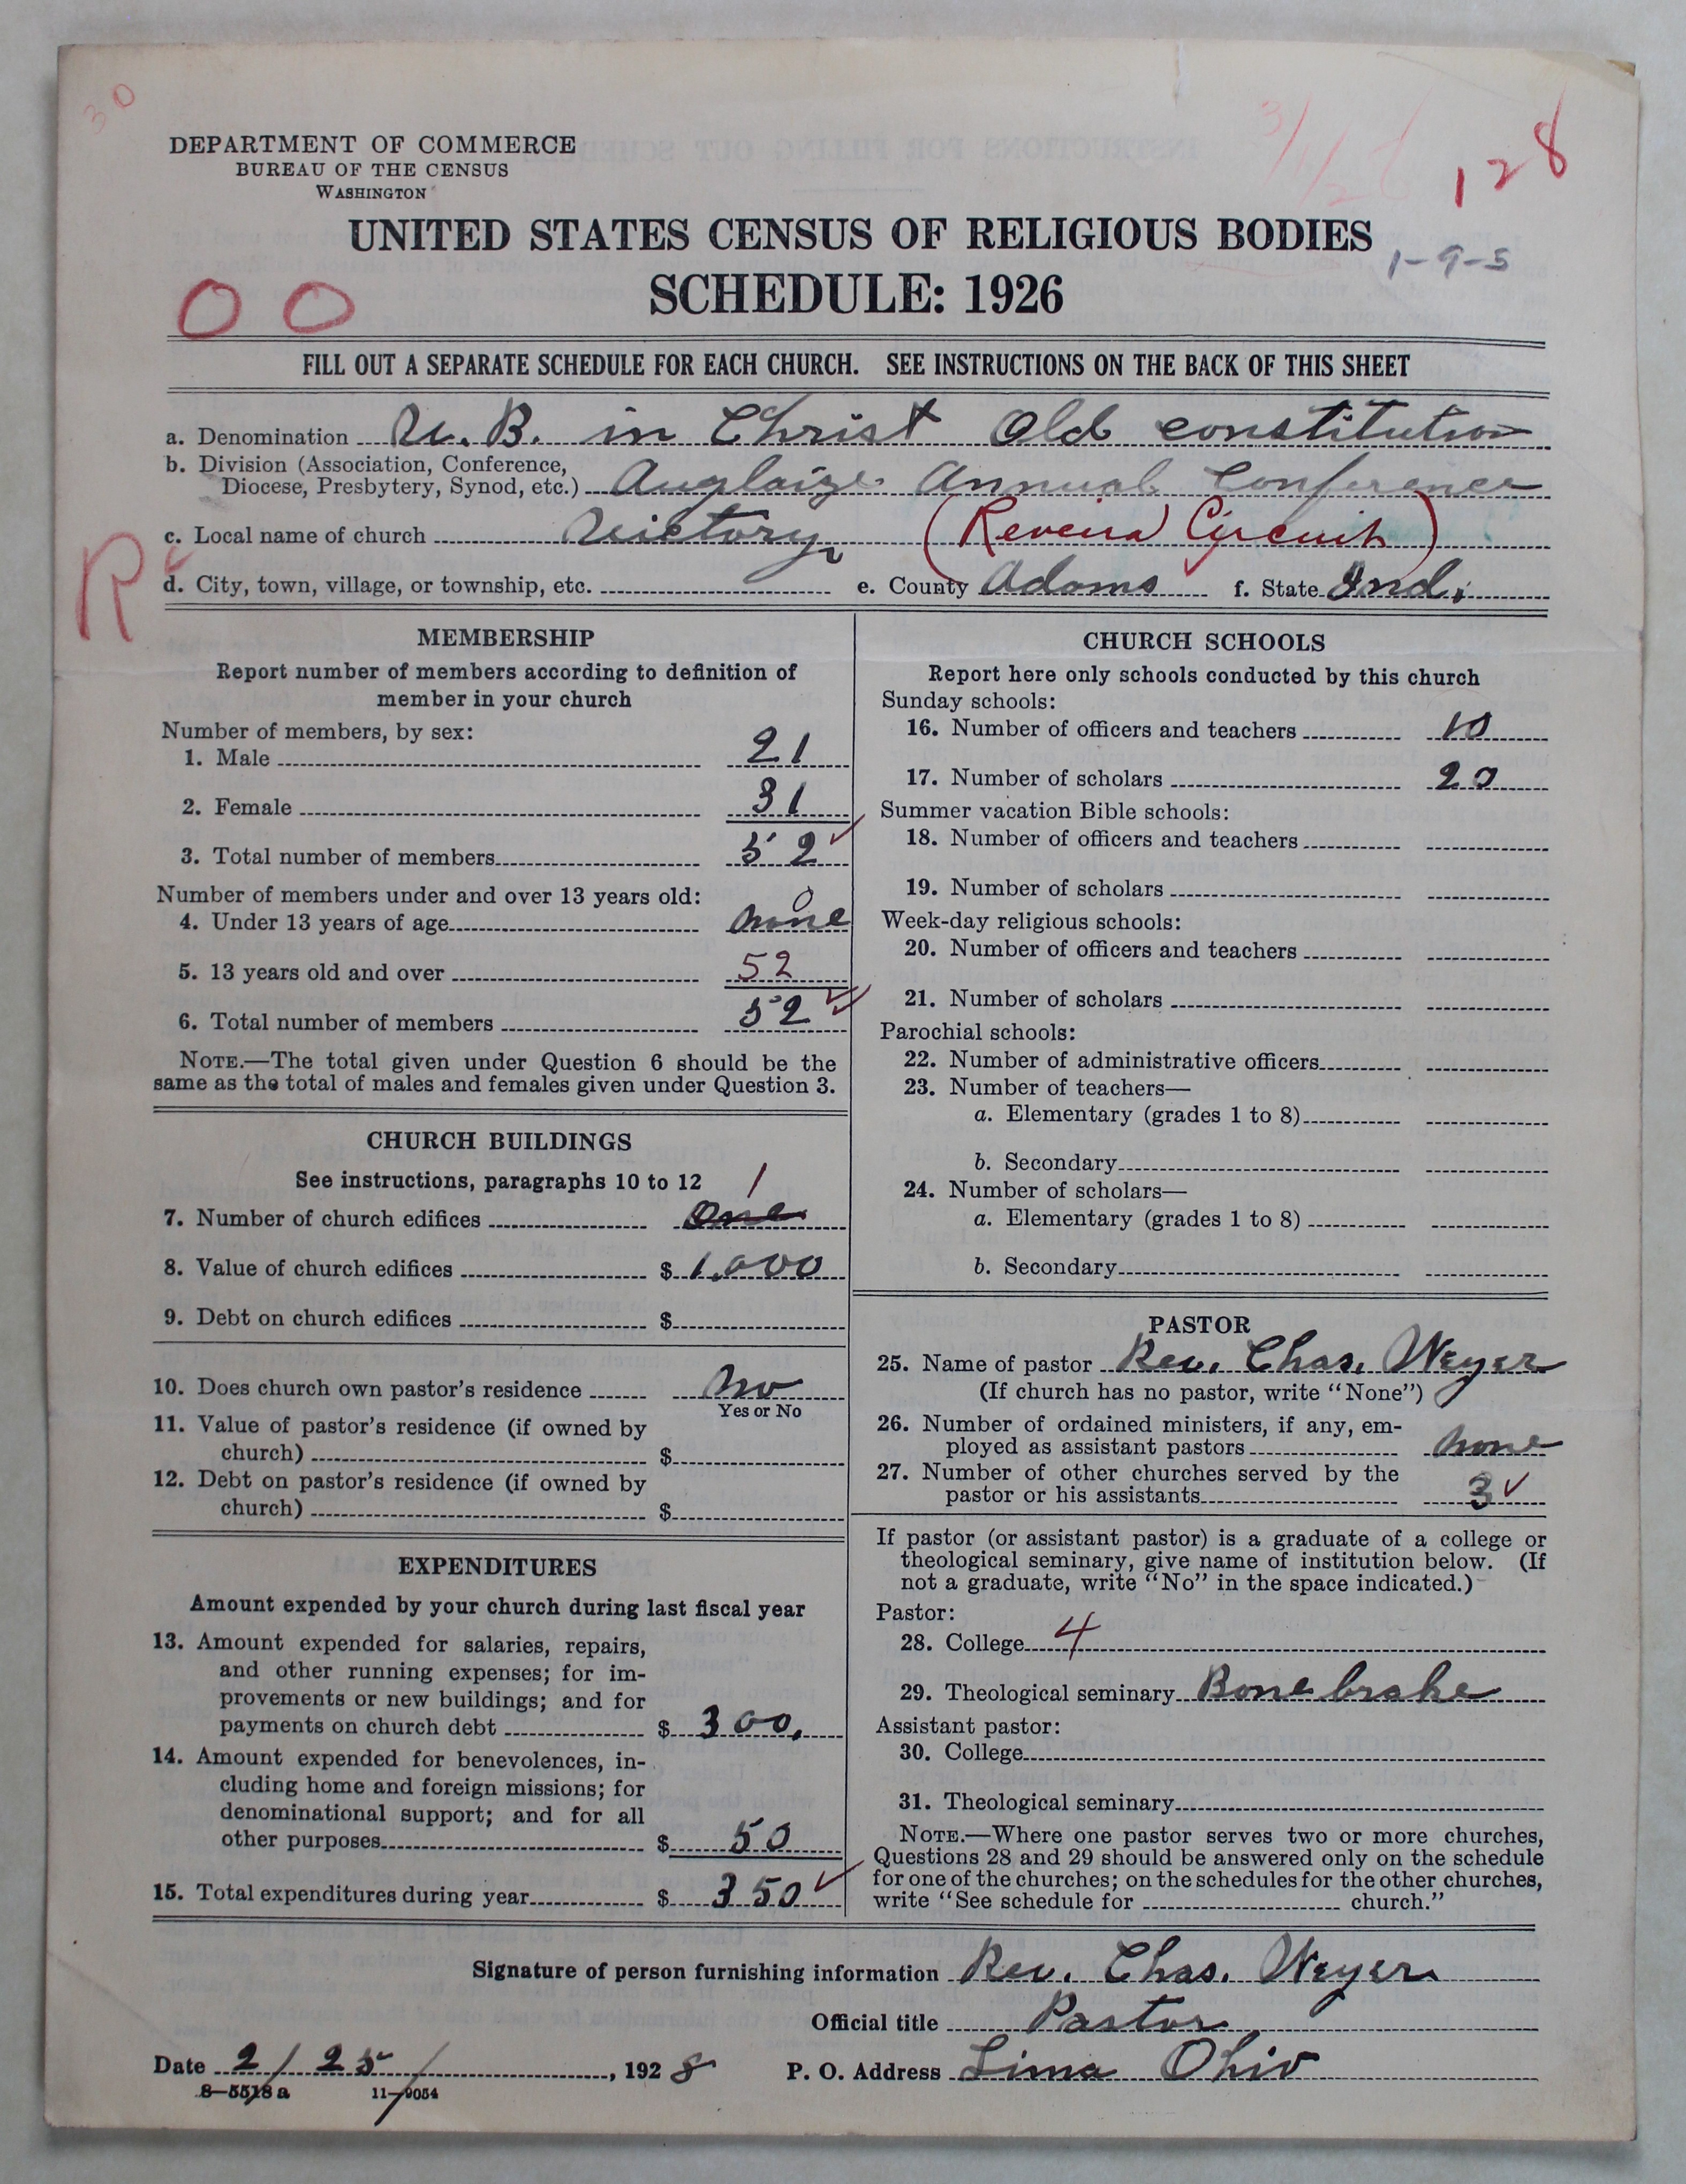 30
3/1/28
128
DEPARTMENT OF COMMERCE
BUREAU OF THE CENSUS
WASHINGTON
UNITED STATES CENSUS OF RELIGIOUS BODIES
1-9-5
SCHEDULE: 1926
00
FILL OUT A SEPARATE SCHEDULE FOR EACH CHURCH. SEE INSTRUCTIONS ON THE BACK OF THIS SHEET
a. Denomination U.B. in Christ Old constitution
b. Division (Association, Conference,
Diocese, Presbytery, Synod, etc.) Auglaize Annual Conference
c. Local name of church Victory (Circuit)
R
d. City, town, village, or township, etc. e. County Adams f. State Ind.
MEMBERSHIP
Report number of members according to definition of
member in your church
Number of members, by sex:
1. Male 21
2. Female 31
3. Total number of members 52
Number of members under and over 13 years old:
0
4. Under 13 years of age none
5. 13 years old and over 52
6. Total number of members 52
NOTE.—The total given under Question 6 should be the
same as the total of males and females given under Question 3.
CHURCH BUILDINGS
See instructions, paragraphs 10 to 12
1
7. Number of church edifices One
8. Value of church edifices $ 1,000
9. Debt on church edifices $
10. Does church own pastor's residence No
Yes or No
11. Value of pastor's residence (if owned by
church) $
12. Debt on pastor's residence (if owned by
church) $
EXPENDITURES
Amount expended by your church during last fiscal year
13. Amount expended for salaries, repairs,
and other running expenses; for im-
provements or new buildings; and for
payments on church debt $ 300.
14. Amount expended for benevolences, in-
cluding home and foreign missions; for
denominational support; and for all
other purposes $ 50
15. Total expenditures during year $ 350
CHURCH SCHOOLS
Report here only schools conducted by this church
Sunday schools:
16. Number of officers and teachers 10
17. Number of scholars 20
Summer vacation Bible schools:
18. Number of officers and teachers
19. Number of scholars
Week-day religious schools:
20. Number of officers and teachers
21. Number of scholars
Parochial schools:
22. Number of administrative officers
23. Number of teachers—
a. Elementary (grades 1 to 8)
b. Secondary
24. Number of scholars—
a. Elementary (grades 1 to 8)
b. Secondary
PASTOR
25. Name of pastor Rev. Chas. Weyer
(If church has no pastor, write "None")
26. Number of ordained ministers, if any, em-
ployed as assistant pastors none
27. Number of other churches served by the
pastor or his assistants 3
If pastor (or assistant pastor) is a graduate of a college or
theological seminary, give name of institution below. (If
not a graduate, write "No" in the space indicated.)
Pastor:
28. College 4
29. Theological seminary Bonebrake
Assistant pastor:
30. College
31. Theological seminary
NOTE.—Where one pastor serves two or more churches,
Questions 28 and 29 should be answered only on the schedule
for one of the churches; on the schedules for the other churches,
write "See schedule for church."
Signature of person furnishing information Rev. Chas. Weyer
Official title Pastor
Date 2/25/, 1928 P. O. Address Lima Ohio
8—5518 a 11—9054